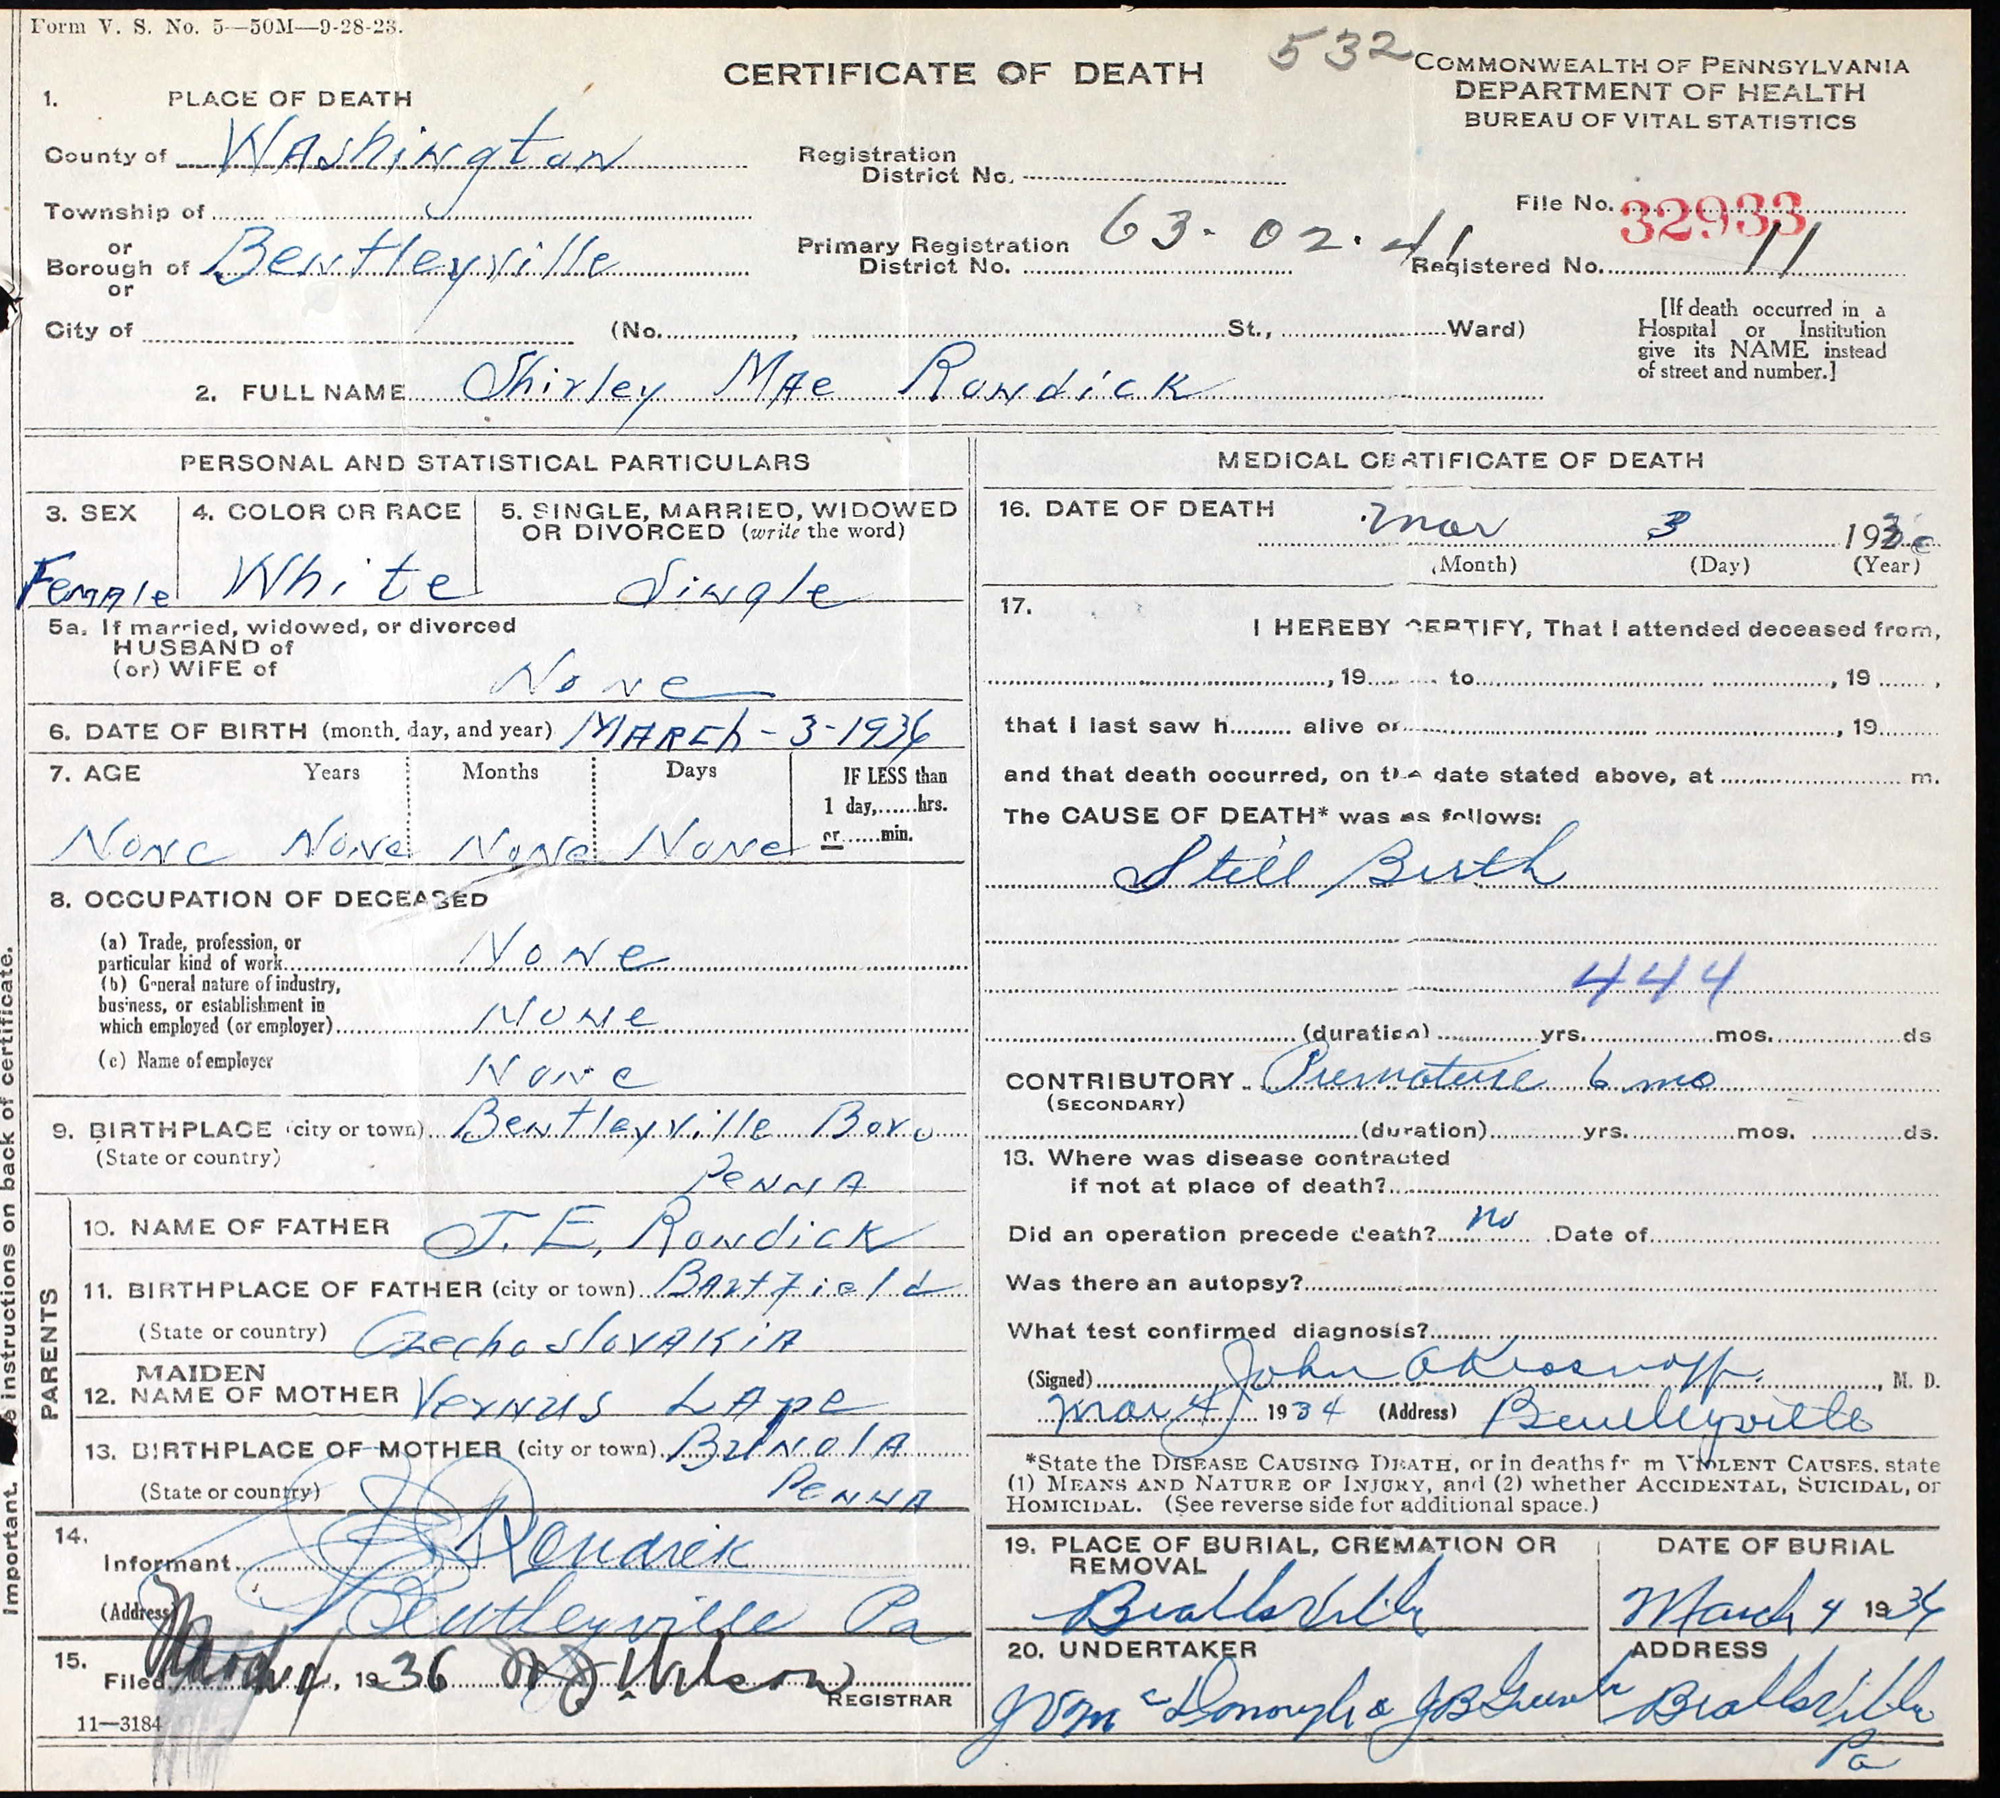 Form V. S. No. 5—50M—9-28-23.
532
CERTIFICATE OF DEATH
COMMONWEALTH OF PENNSYLVANIA
DEPARTMENT OF HEALTH
BUREAU OF VITAL STATISTICS
1. PLACE OF DEATH
County of Washington
Registration District No.
Township of
File No. 32933
or
Borough of Bentleyville
Primary Registration District No. 63-02-41
Registered No. 11
or
City of (No. , St., Ward)
[If death occurred in a Hospital or Institution give its NAME instead of street and number.]
2. FULL NAME Shirley Mae Rondick
PERSONAL AND STATISTICAL PARTICULARS
3. SEX
Female
4. COLOR OR RACE
White
5. SINGLE, MARRIED, WIDOWED
OR DIVORCED (write the word)
Single
5a. If married, widowed, or divorced
HUSBAND of
(or) WIFE of
None
6. DATE OF BIRTH (month, day, and year) March-3-1936
7. AGE Years Months Days
None None None None
IF LESS than
1 day,......hrs.
or......min.
8. OCCUPATION OF DECEASED
(a) Trade, profession, or
particular kind of work None
(b) General nature of industry,
business, or establishment in
which employed (or employer) None
(c) Name of employer None
9. BIRTHPLACE (city or town) Bentleyville Boro
(State or country) Penna
PARENTS
10. NAME OF FATHER J. E. Rondick
11. BIRTHPLACE OF FATHER (city or town) Bartfield
(State or country) Czechoslovakia
12. MAIDEN NAME OF MOTHER Vernus Lape
13. BIRTHPLACE OF MOTHER (city or town) Bunola
(State or country) Penna
14.
Informant Rondick
(Address) Bentleyville Pa
15.
Filed March 4, 1936 Wilson
REGISTRAR
11—3184
MEDICAL CERTIFICATE OF DEATH
16. DATE OF DEATH Mar 3 193
(Month) (Day) (Year)
17.
I HEREBY CERTIFY, That I attended deceased from,
, 19 to , 19 ,
that I last saw h alive on , 19
and that death occurred, on the date stated above, at m.
The CAUSE OF DEATH* was as follows:
Still Birth
444
(duration) yrs. mos. ds
CONTRIBUTORY Premature 6 mo
(SECONDARY)
(duration) yrs. mos. ds.
18. Where was disease contracted
if not at place of death?
Did an operation precede death? no Date of
Was there an autopsy?
What test confirmed diagnosis?
(Signed) John A Krosnoff, M. D.
Mar 4 1934 (Address) Bentleyville
*State the DISEASE CAUSING DEATH, or in deaths from VIOLENT CAUSES, state
(1) MEANS AND NATURE OF INJURY, and (2) whether ACCIDENTAL, SUICIDAL, or
HOMICIDAL. (See reverse side for additional space.)
19. PLACE OF BURIAL, CREMATION OR
REMOVAL
Beallsville
DATE OF BURIAL
March 4 1936
20. UNDERTAKER
McDonough & J B Greenlee
ADDRESS
Beallsville
Pa
Important. instructions on back of certificate.